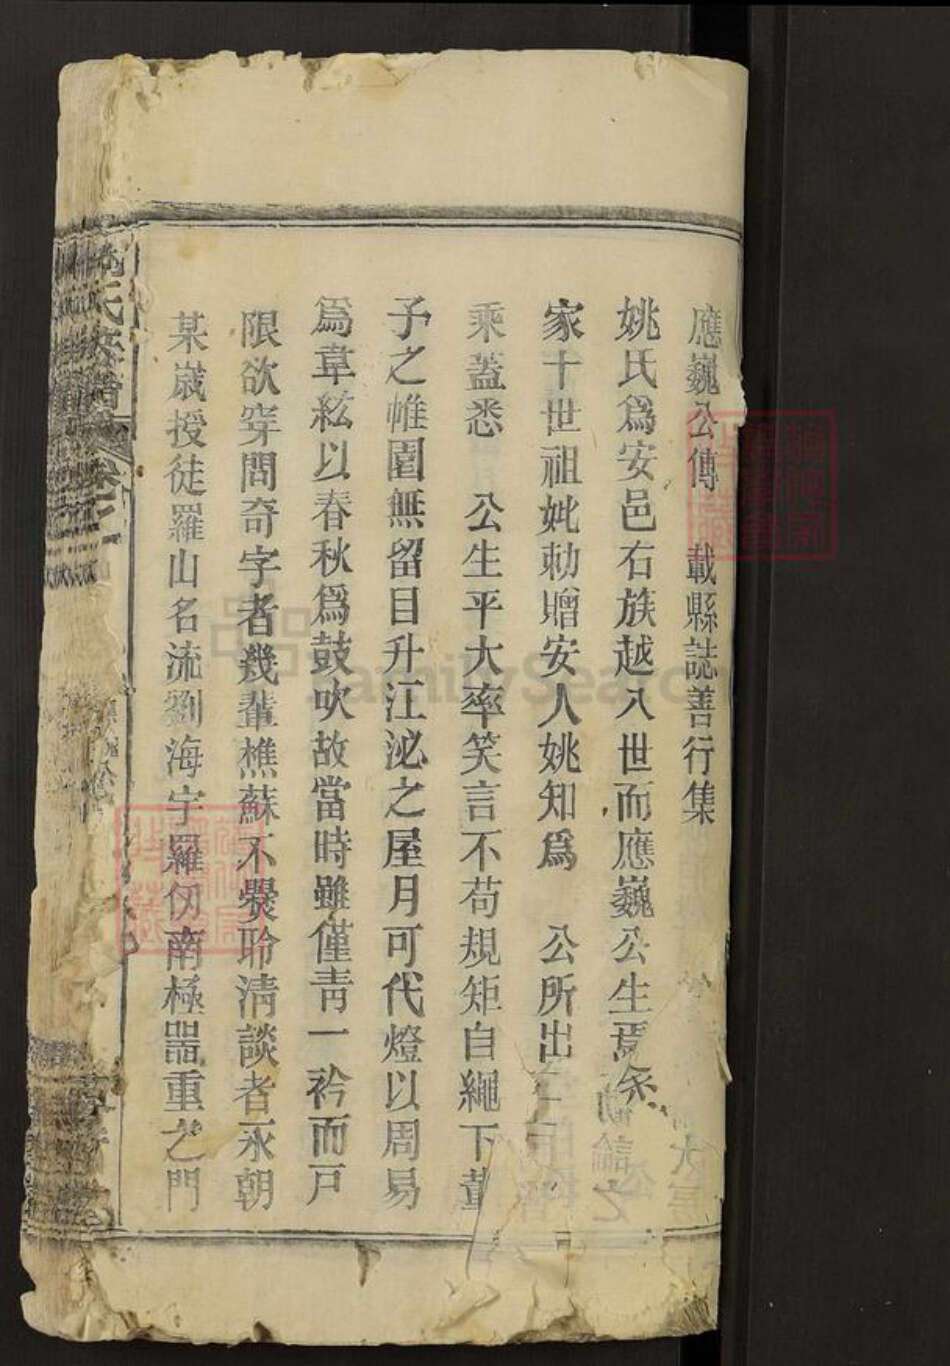 應巍公傳 載縣誌善行集
姚氏爲安邑右族越入世而應巍公生焉余
家十世祖妣勅贈安人姚知爲 公所出
乘蓋悉 公生平大率笑言不苟規矩自繩下董
子之帷園無留目升江泌之屋月可代燈以周易
爲韋絃以春秋爲鼓吹故當時雖僅靑一衿而戸
限欲穿問奇字者幾輩樵蘇不爨聆淸談者永朝
某嵗授徒羅山名流劉海宇羅伆南極器重之門
氏族譜 卷
FamilySearch